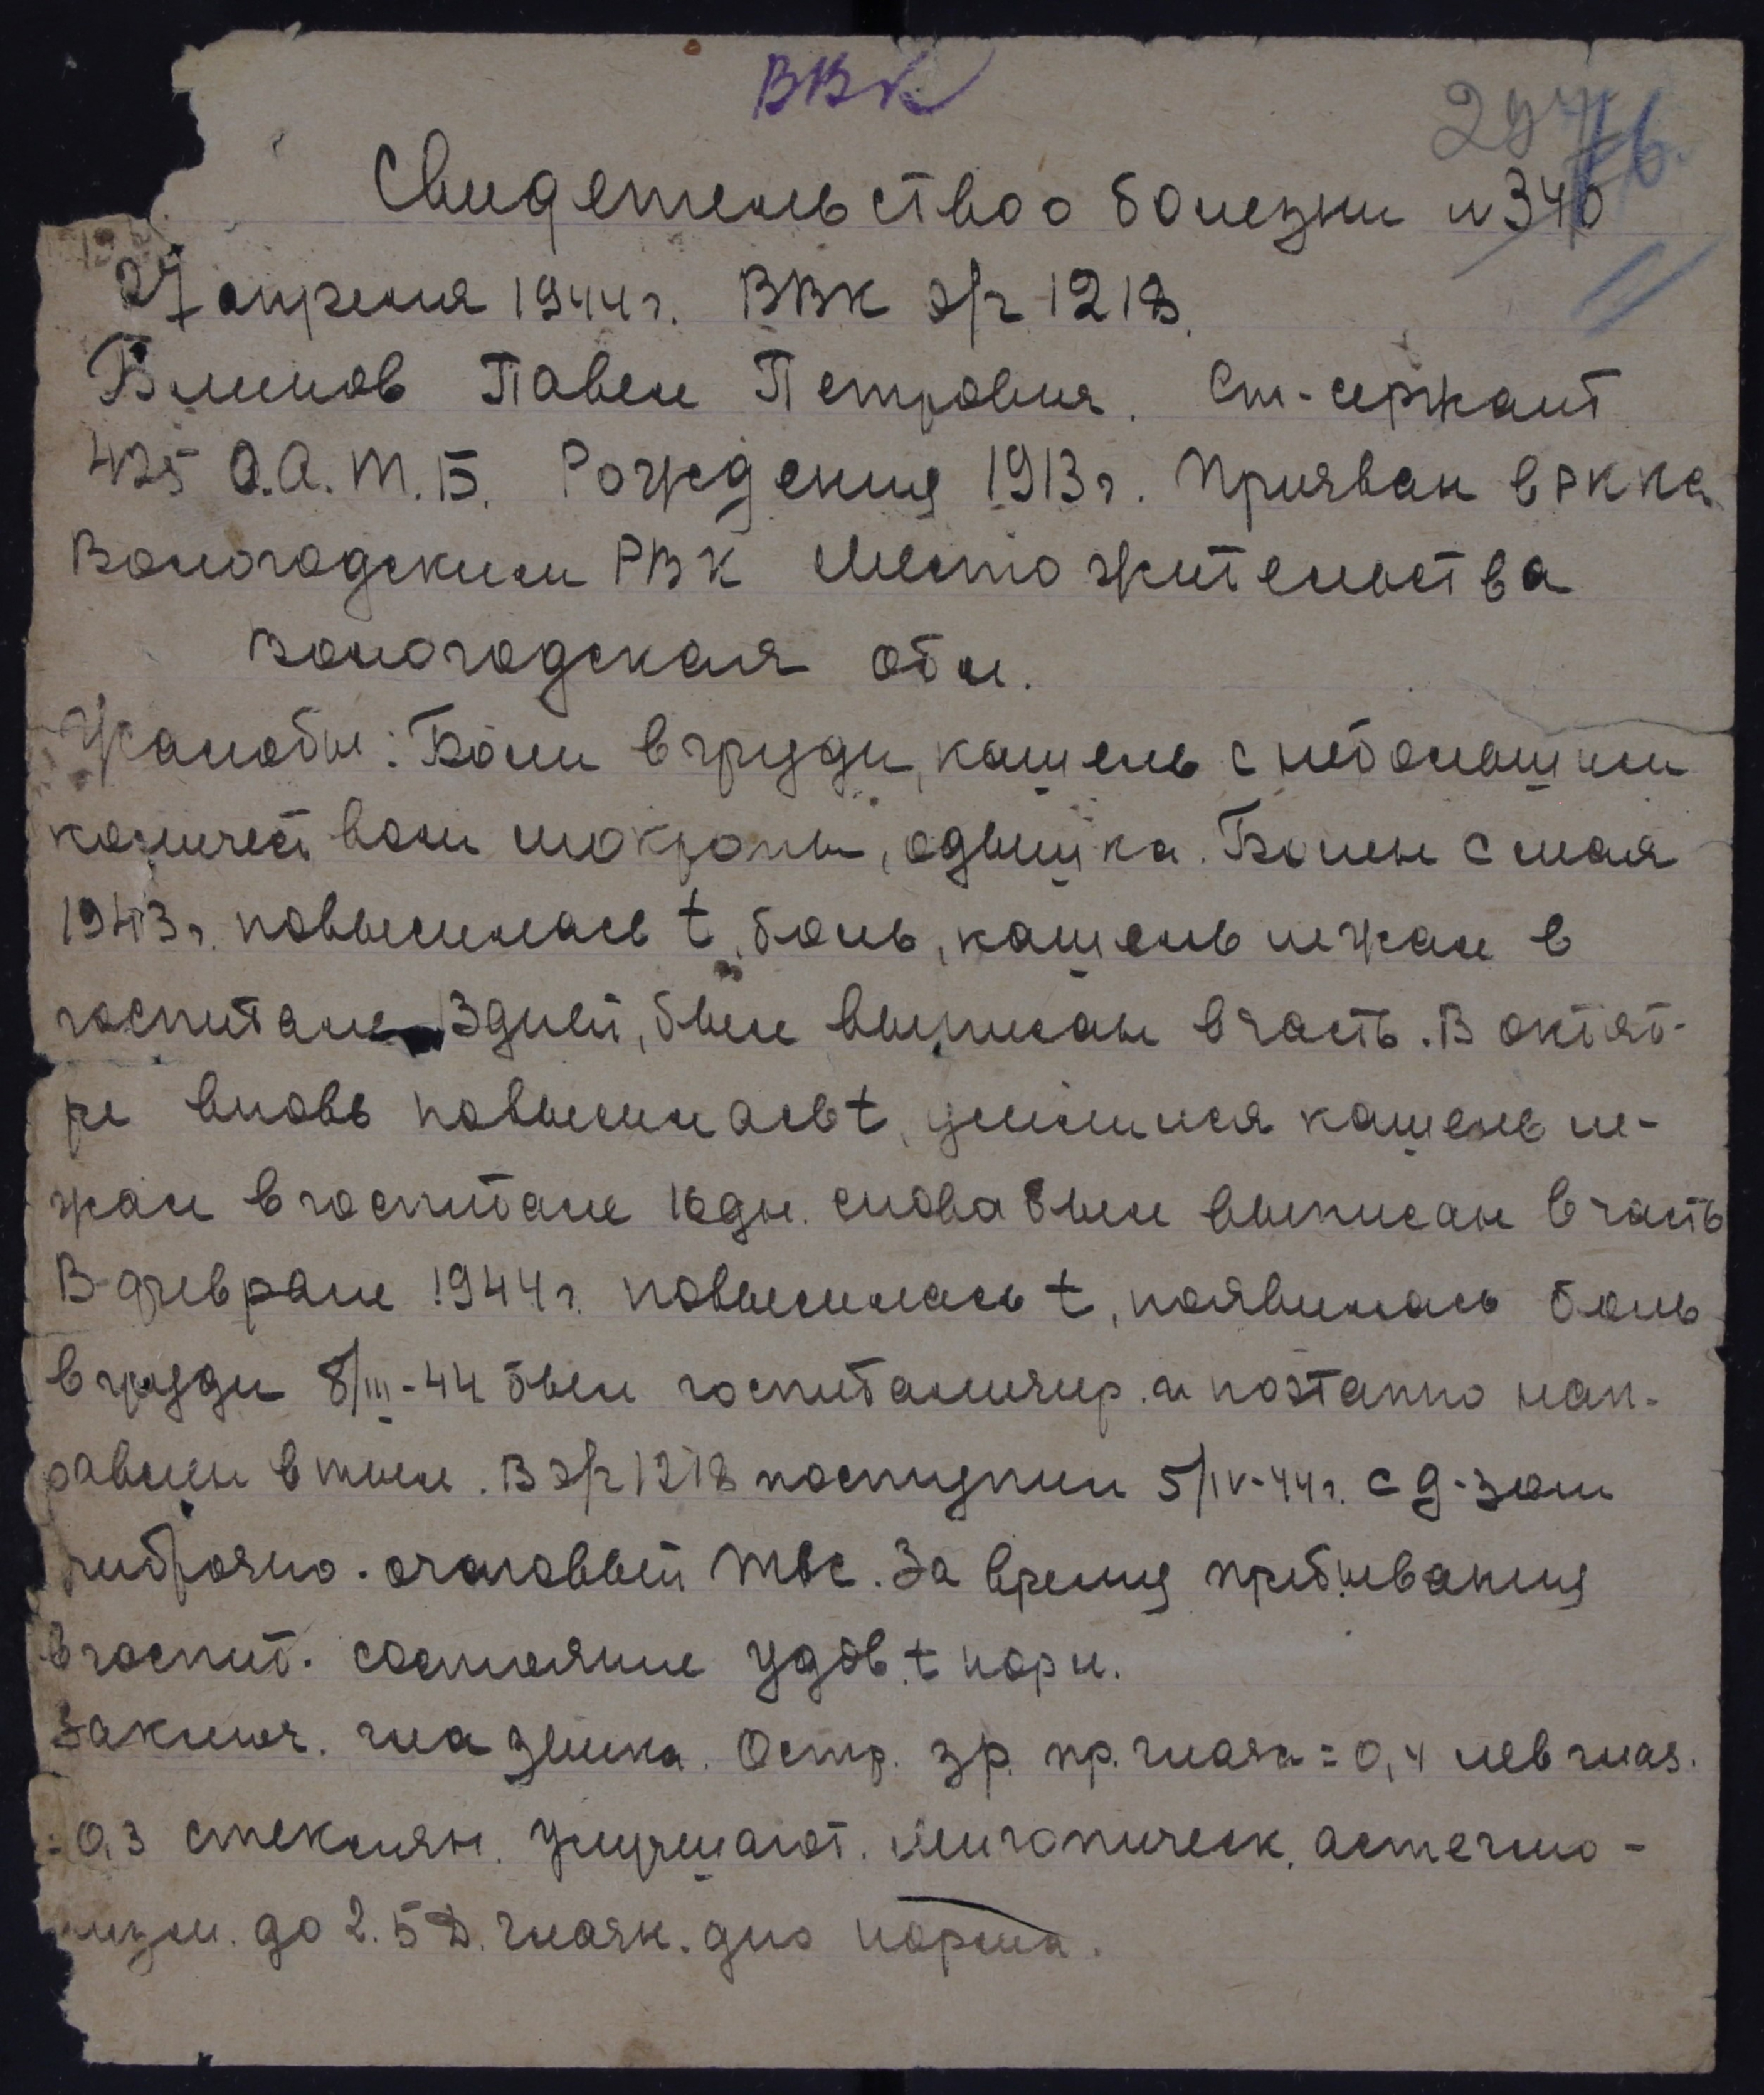 ВВК
Свидетельство о болезни N 340
27 апреля 1944 г. ВВК э/г 1218.
Блинов Павел Петрович. Ст-сержант
425 О.А.Т.Б. Рождения 1913 г. Призван в РККА
Вологодским РВК Место жительства
Вологодская обл.
Жалобы: Боли в груди, кашель с небольшим
количеством мокроты, одышка. Болен с мая
1943 г. повысилась t, боль, кашель лежал в
госпитале 3 дней, был выписан в часть. В октяб-
ре вновь повысилась t, усилился кашель ле-
жал в госпитале 16 дн. снова был выписан в часть
В феврале 1944 г. повысилась t, появилась боль
в груди 8/III-44 был госпитализир. и поэтапно нап-
равлен в тыл. В э/г 1218 поступил 5/IV-44 г. с д-зом
фиброзно-очаговый твс. За время пребывания
в госпит. состояние удов. t норм.
Заключ. глазника. Остр. зр. пр. глаза = 0,4 лев глаз.
= 0.3 стеклян. улучшают. Миопическ. астегмо-
низм. до 2.5 D. глазн. дно норма.